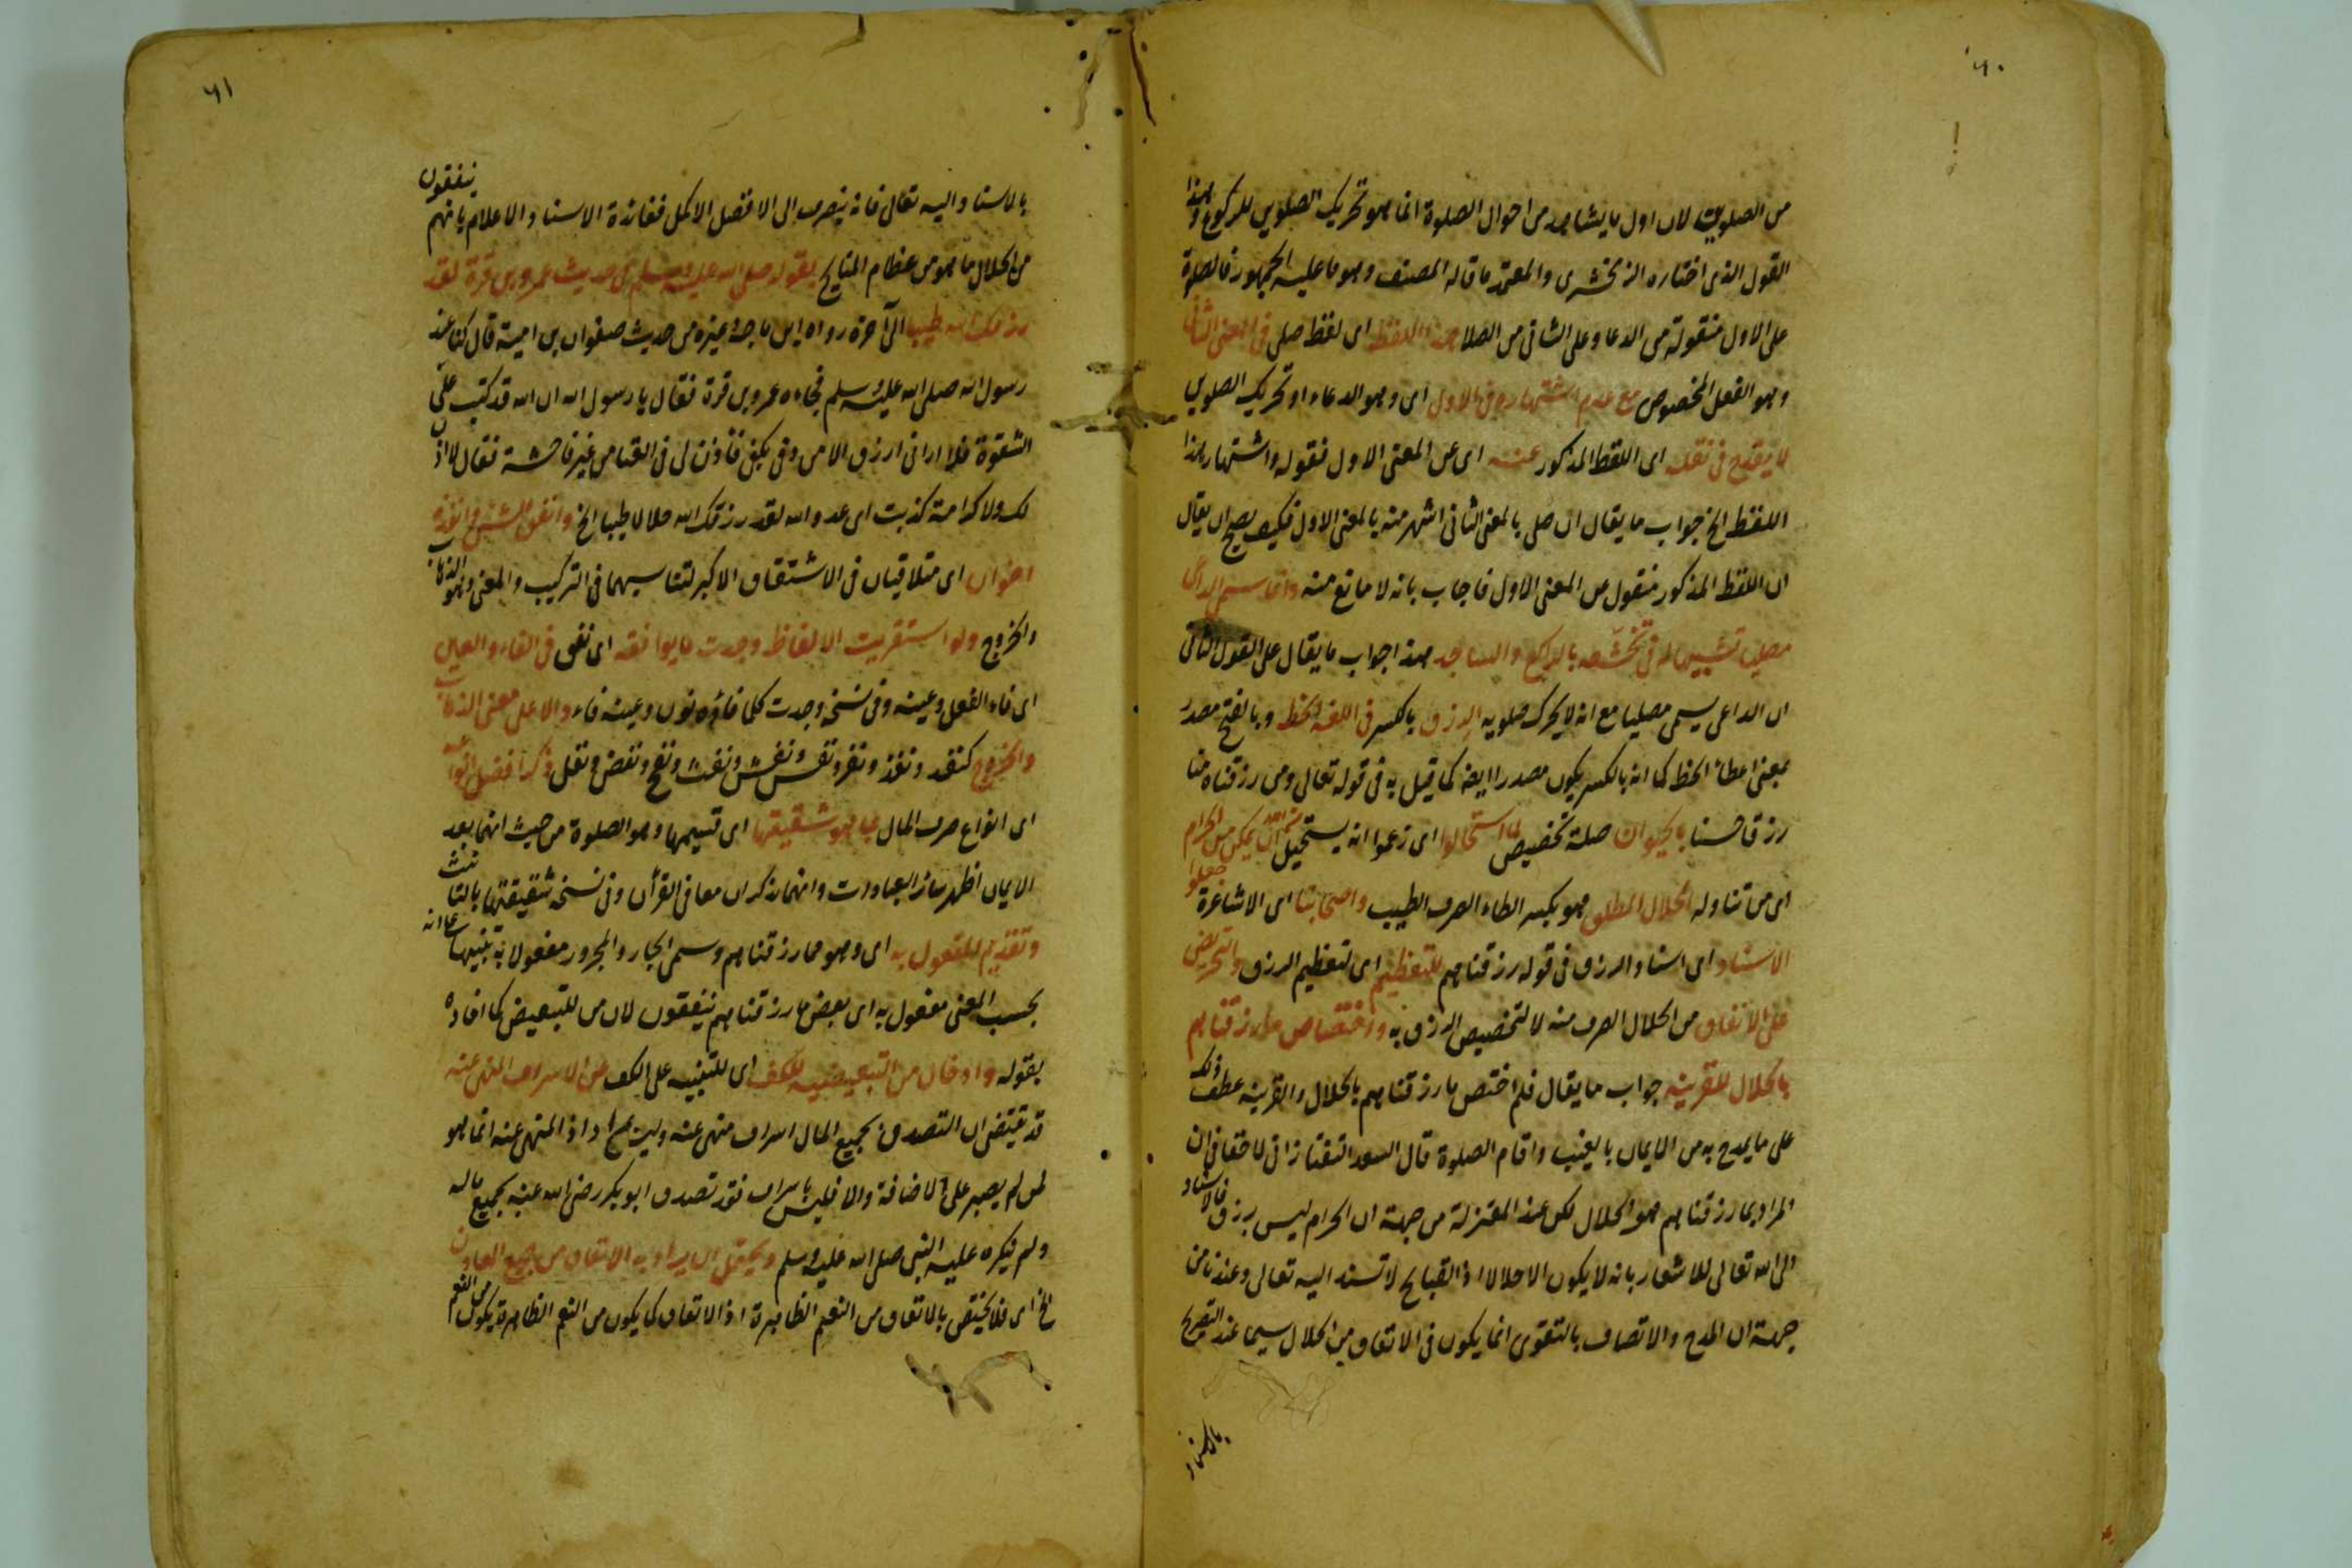 ٦٠
من الصلوين لان اول ما يشاهد من احوال الصلوة انما هو تحريك الصلوين للركوع وهذا
القول الذى اختاره الزمخشرى والمعتمد ما قاله المصنف وهو ما عليه الجمهور فالصلوة
على الاول منقولة من الدعا وعلى الثانى من الصلا هذا اللفظ اى لفظ صلى فى المعنى الثانى
وهو الفعل المخصوص مع عدم اشتهاره فى الاول اى وهو الدعاء او تحريك الصلوين
لا يقدح فى نقله اى اللفظ المذكور عنه اى عن المعنى الاول فقوله واشتهار هذا
اللفظ الخ جواب ما يقال ان صلى بالمعنى الثانى اشهر منه بالمعنى الاول فكيف يصح ان يقال
ان اللفظ المذكور منقول من المعنى الاول فاجاب بانه لا مانع منه وانما سمى الداعى
مصليا تشبيها له فى تخشعه بالراكع والساجد هذا جواب ما يقال على القول الثانى
ان الداعى يسمى مصليا مع انه لا يحرك صلويه الرزق بالكسر فى اللغة الحظ وبالفتح مصدر
بمعنى اعطاء الحظ كما انه بالكسر يكون مصدرا ايضه كما قيل به فى قوله تعالى ومن رزقناه منا
رزقا حسنا بالحيوان صلة تخصيص لما استحالوا اى زعموا انه يستحيل ان يمكن من الحرام
اى من تناوله الحلال المطلق هو بكسر الطاء الصرف الطيب واصحابنا اى الاشاعرة جعلوا
الاسناد اى اسناد الرزق فى قوله رزقناهم للتعظيم اى لتعظيم الرزق والتحريض
على الانفاق من الحلال الصرف منه لا لتخصيص الرزق به واختصاص ما رزقناهم
بالحلال للقرينة جواب ما يقال فلم اختص ما رزقناهم بالحلال والقرينة عطف ذلك
على ما يمدح به من الايمان بالغيب واقام الصلوة قال السعد التفتازانى لا خفا فى ان
المراد بما رزقناهم هو الحلال لكن عند المعتزلة من جهة ان الحرام ليس برزق فالاسناد
الى الله تعالى للاشعار بانه لا يكون الا حلالا اذ القبائح لا تسند اليه تعالى وعندنا من
جهة ان المدح والاتصاف بالتقوى انما يكون فى الانفاق من الحلال سيما عند التصريح
بالاسناد
٦١
بالاسناد اليه تعالى فانه ينصرف الى الافضل الاكمل ففائدة الاسناد الاعلام بانهم ينفقون
من الحلال ما هو من عظام المنايح بقوله صلى الله عليه وسلم فى حديث عمرو بن قرة لقد
رزقك الله طيبا الى آخره رواه ابن ماجة وغيره من حديث صفوان بن امية قال كنا عند
رسول الله صلى الله عليه وسلم فجاءه عمرو بن قرة فقال يا رسول الله ان الله قد كتب علىّ
الشقوة فلا ارانى ارزق الا من دفى بكفى فأذن لى فى الغنا من غير فاحشة فقال لا اذن
لك ولا كرامة كذبت اى عدو الله لقد رزقك الله حلالا طيبا الخ وانفق الشئ وانفذه
اخوان اى متلاقيان فى الاشتقاق الاكبر لتناسبهما فى التركيب والمعنى وهو الذهاب
والخروج ولو استقريت الالفاظ وجدت ما يوافقه اى نفق فى الفاء والعين
اى فاء الفعل وعينه وفى نسخه وجدت كلما فاؤه نون وعينه فاء دالا على معنى الذهاب
والخروج كنفد ونفذ ونفر ونفس ونفش ونفث ونفح ونفض ونفل ذكر افضل انواعه
اى انواع صرف المال بما هو شقيقتها اى قسيمها وهو الصلوة من حيث انهما بعد
الايمان اظهر سائر العبادات وانهما يذكران معا فى القرأن وفى نسخه شقيقتها بالتانيث
وتقديم المفعول به اى وهو مما رزقناهم وسمى الجار والمجرور مفعولا به تنبيها على انه
بحسب المعنى مفعول به اى بعض ما رزقناهم ينفقون لان من للتبعيض كما افاده
بقوله وادخال من التبعيضيه للكف اى للتنبيه على الكف عن الاسراف المنهى عنه
قد يقتضى ان التصدق بجميع المال اسراف منهى عنه وليس مرادا اذ المنهى عنه انما هو
لمن لم يصبر على الاضافة والا فليس باسراف فقد تصدق ابو بكر رضى الله عنه بجميع ماله
ولم ينكره عليه النبى صلى الله عليه وسلم ويحتمل ان يراد به الانفاق من جميع المعادن
الخ اى فلا يختص بالانفاق من النعم الظاهرة اذ الانفاق كما يكون من النعم الظاهرة يكون من النعم